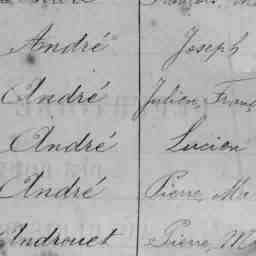 André Joseph
André Julien, Franç
André Lucien
André Pierre, Ma
Androuet Pierre, M